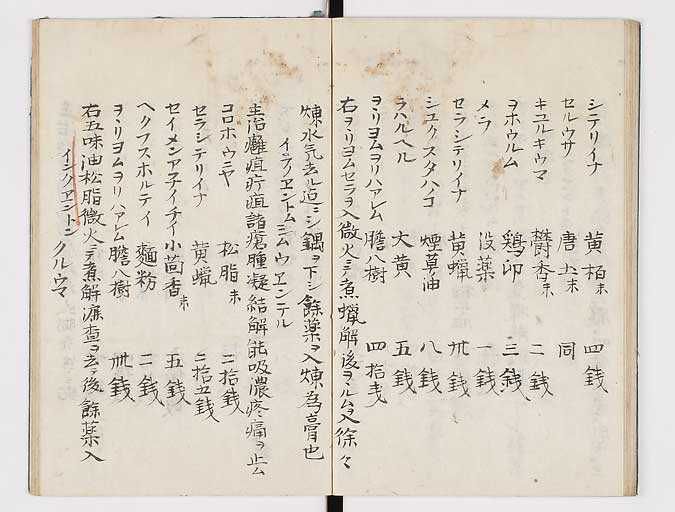 シテリイナ 黄栢末 四銭
セルウサ 唐土末 同
キユルキウマ 欝香末 二銭
ヲホウルム 鶏卵 三銭
メラ 没薬 一銭
セラシテリイナ 黄蠟 卅銭
シユクスタハコ 煙草油 八銭
ラハルヘル 大黄 五銭
ヲヽリヨムヲリハアレム 膽八樹 四拾戔
右ヲリヨムセラヲ入微火ニテ煮蠟解後ヲマル入徐々
煉水気去ル迠ニシ鍋ヲ下シ餘薬ヲ入煉為膏也
インクヱントムミムウヱンテル
主治癰疽疔疽諸瘡腫凝結解能吸濃疼痛ヲ止ム
コロホウニヤ 松脂末 二拾銭
セラシテリイナ 黄蠟 二拾五銭
セイメンアチイチイ 小茴香末 五銭
ヘクフスホルテイ 麵粉 二銭
ヲヽリヨムヲリハアレム 膽八樹 卅銭
右五味油松脂微火ニテ煮解濂查ヲ去テ後餘薬入
インクヱントンクルウマ